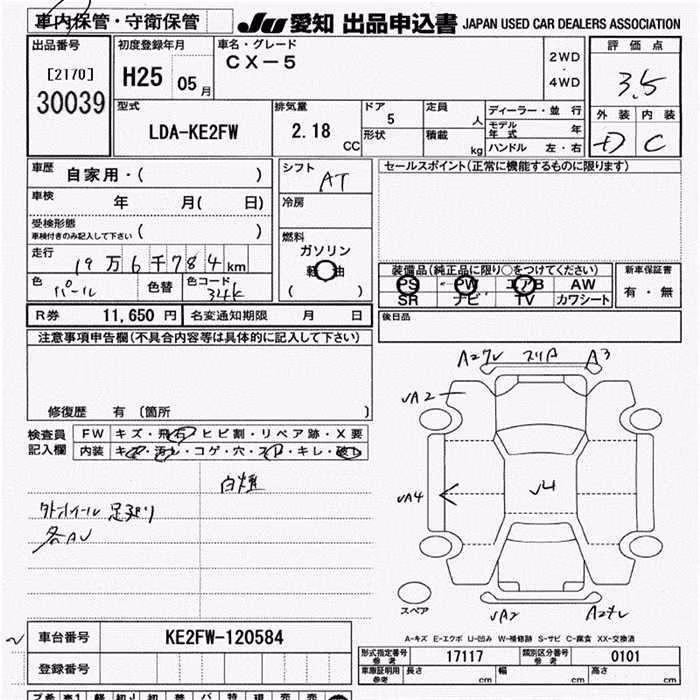 車内保管・守衛保管
JU 愛知 出品申込書 JAPAN USED CAR DEALERS ASSOCIATION
出品番号
[2170]
30039
初度登録年月
H25 05月
車名・グレード
CX-5
2WD
・
4WD
評価点
3.5
外装 内装
D C
型式
LDA-KE2FW
排気量
2.18 CC
ドア
5
形状
定員
人
積載
kg
ディーラー・並行
モデル年式 年
ハンドル 左・右
車歴 自家用・( )
車検 年 月( 日)
受検形態
車検付きのみ記入して下さい ( )
走行 19万6千784km
色 パール 色替 色コード 34K
シフト AT
冷房
燃料
ガソリン
軽油
( )
セールスポイント(正常に機能するものに限ります)
装備品(純正品に限り○をつけてください)
PS PW エアB AW
SR ナビ TV カワシート
新車保証書
有・無
後日品
R券 11,650円 名変通知期限 月 日
注意事項申告欄(不具合内容等は具体的に記入して下さい)
修復歴 有 (箇所 )
検査員記入欄
FW キズ・飛石・ヒビ割・リペア跡・X要
内装 キズ・汚レ・コゲ・穴・スレ・キレ・破レ
白煙
足廻り
各AU
A3
A2
A4
U4
スペア
A-キズ E-エクボ U-凹み W-補修跡 S-サビ C-腐食 XX-交換済
車台番号 KE2FW-120584
登録番号
型式指定番号 参考 17117 類別区分番号 参考 0101
車庫証明用 参考 長さ cm 幅 cm 高さ cm